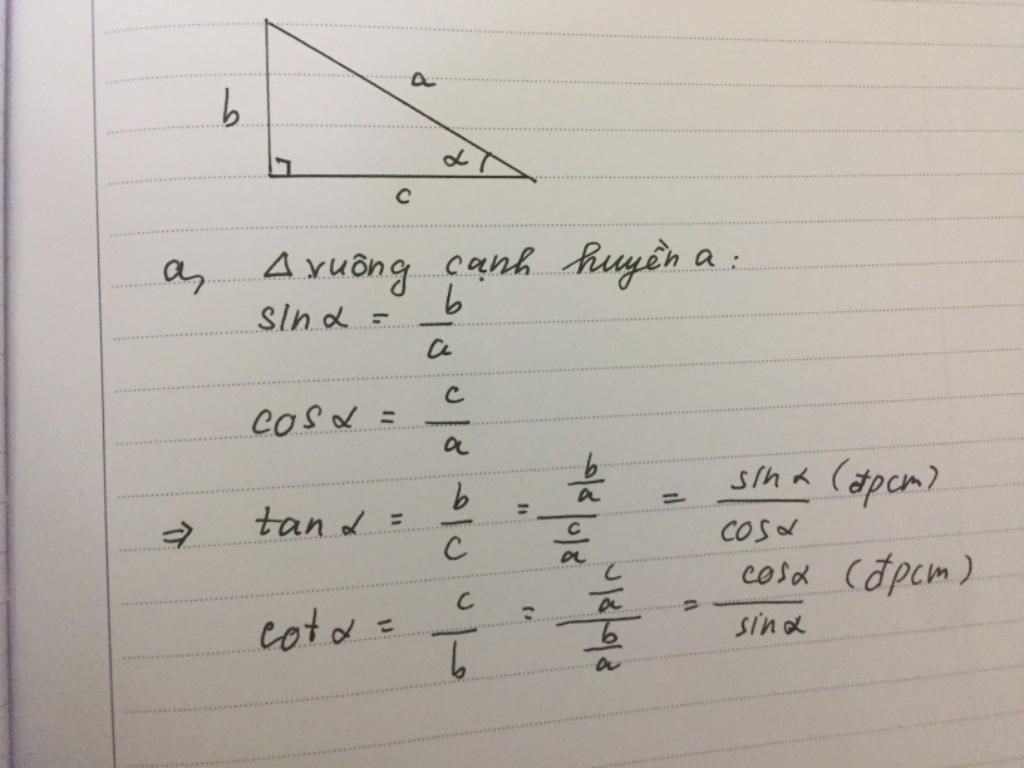 a
b
α
c
a, Δ vuông cạnh huyền a:
sin α = b/a
cos α = c/a
⇒ tan α = b/c = (b/a)/(c/a) = sin α/cos α (đpcm)
cot α = c/b = (c/a)/(b/a) = cos α/sin α (đpcm)